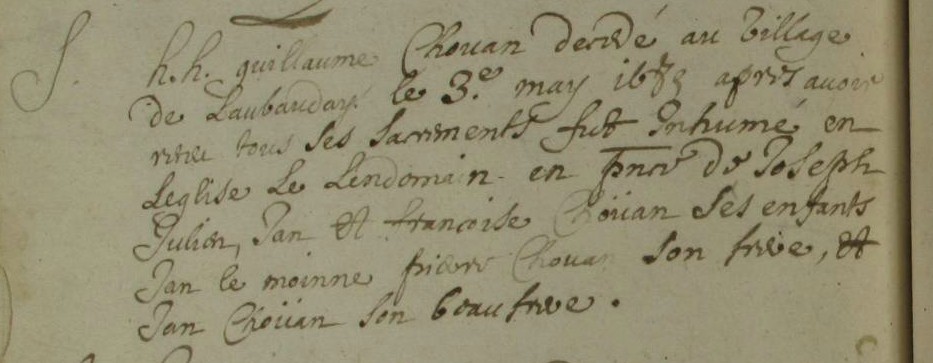 S. h.h. guillaume Choüan decedé au village
de Laubauday le 3.e may 1683 apres avoir
receu tous ses sacrements fut inhumé en
Leglise Le Lendomain en pnce de Joseph
Julien, Jan et francoise Choüan ses enfants
Jan le moinne pierre Chouan son frere, et
Jan Choüan son beau frere.